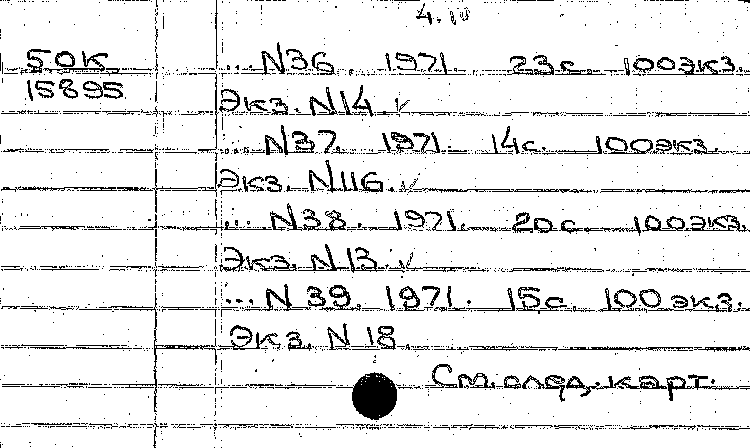 4.
50К
15895
...N36. 1971. 23с. 100экз.
Экз. N14. ✓
... N37. 1971. 14с. 100экз.
Экз. N116. ✓
... N38. 1971. 20с. 100экз.
Экз. N13. ✓
... N39. 1971. 15с. 100экз.
Экз. N18.
См. след. карт.